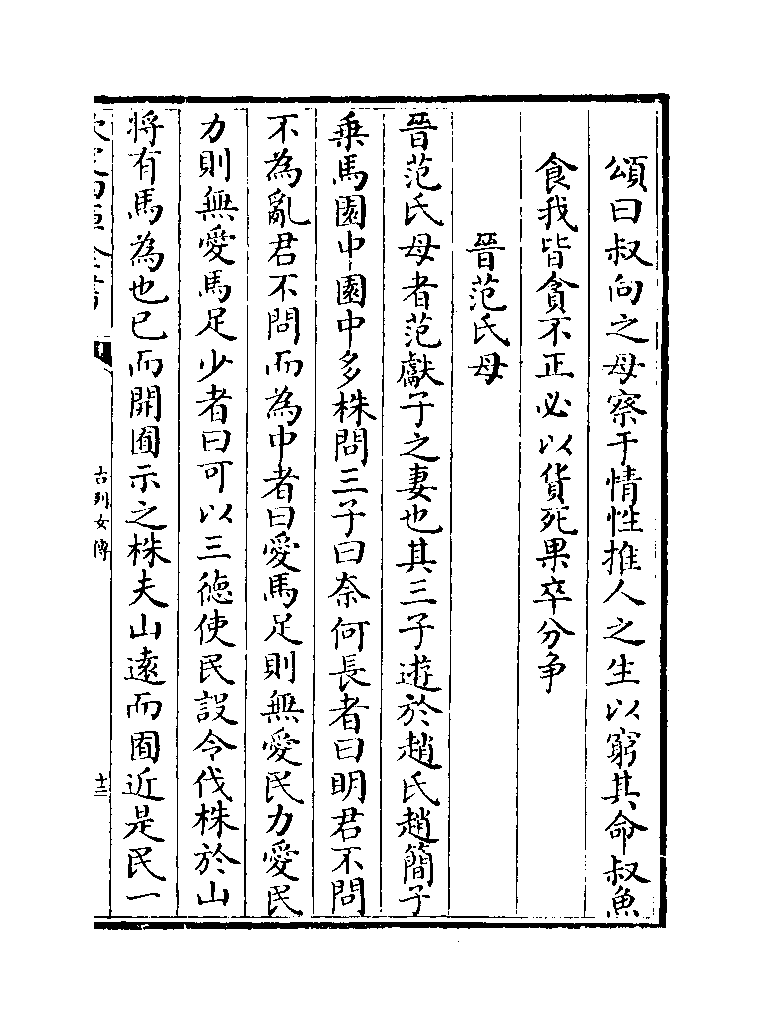 頌曰叔向之母察于情性推人之生以窮其命叔魚
食我皆貪不正必以貨死果卒分争
晉范氏母
晉范氏母者范獻子之妻也其三子遊於趙氏趙簡子
乗馬園中園中多株問三子曰奈何長者曰明君不問
不為亂君不問而為中者曰愛馬足則無愛民力愛民
力則無愛馬足少者曰可以三徳使民設令伐株於山
將有馬為也已而開囿示之株夫山逺而囿近是民一
古列女傳
十三